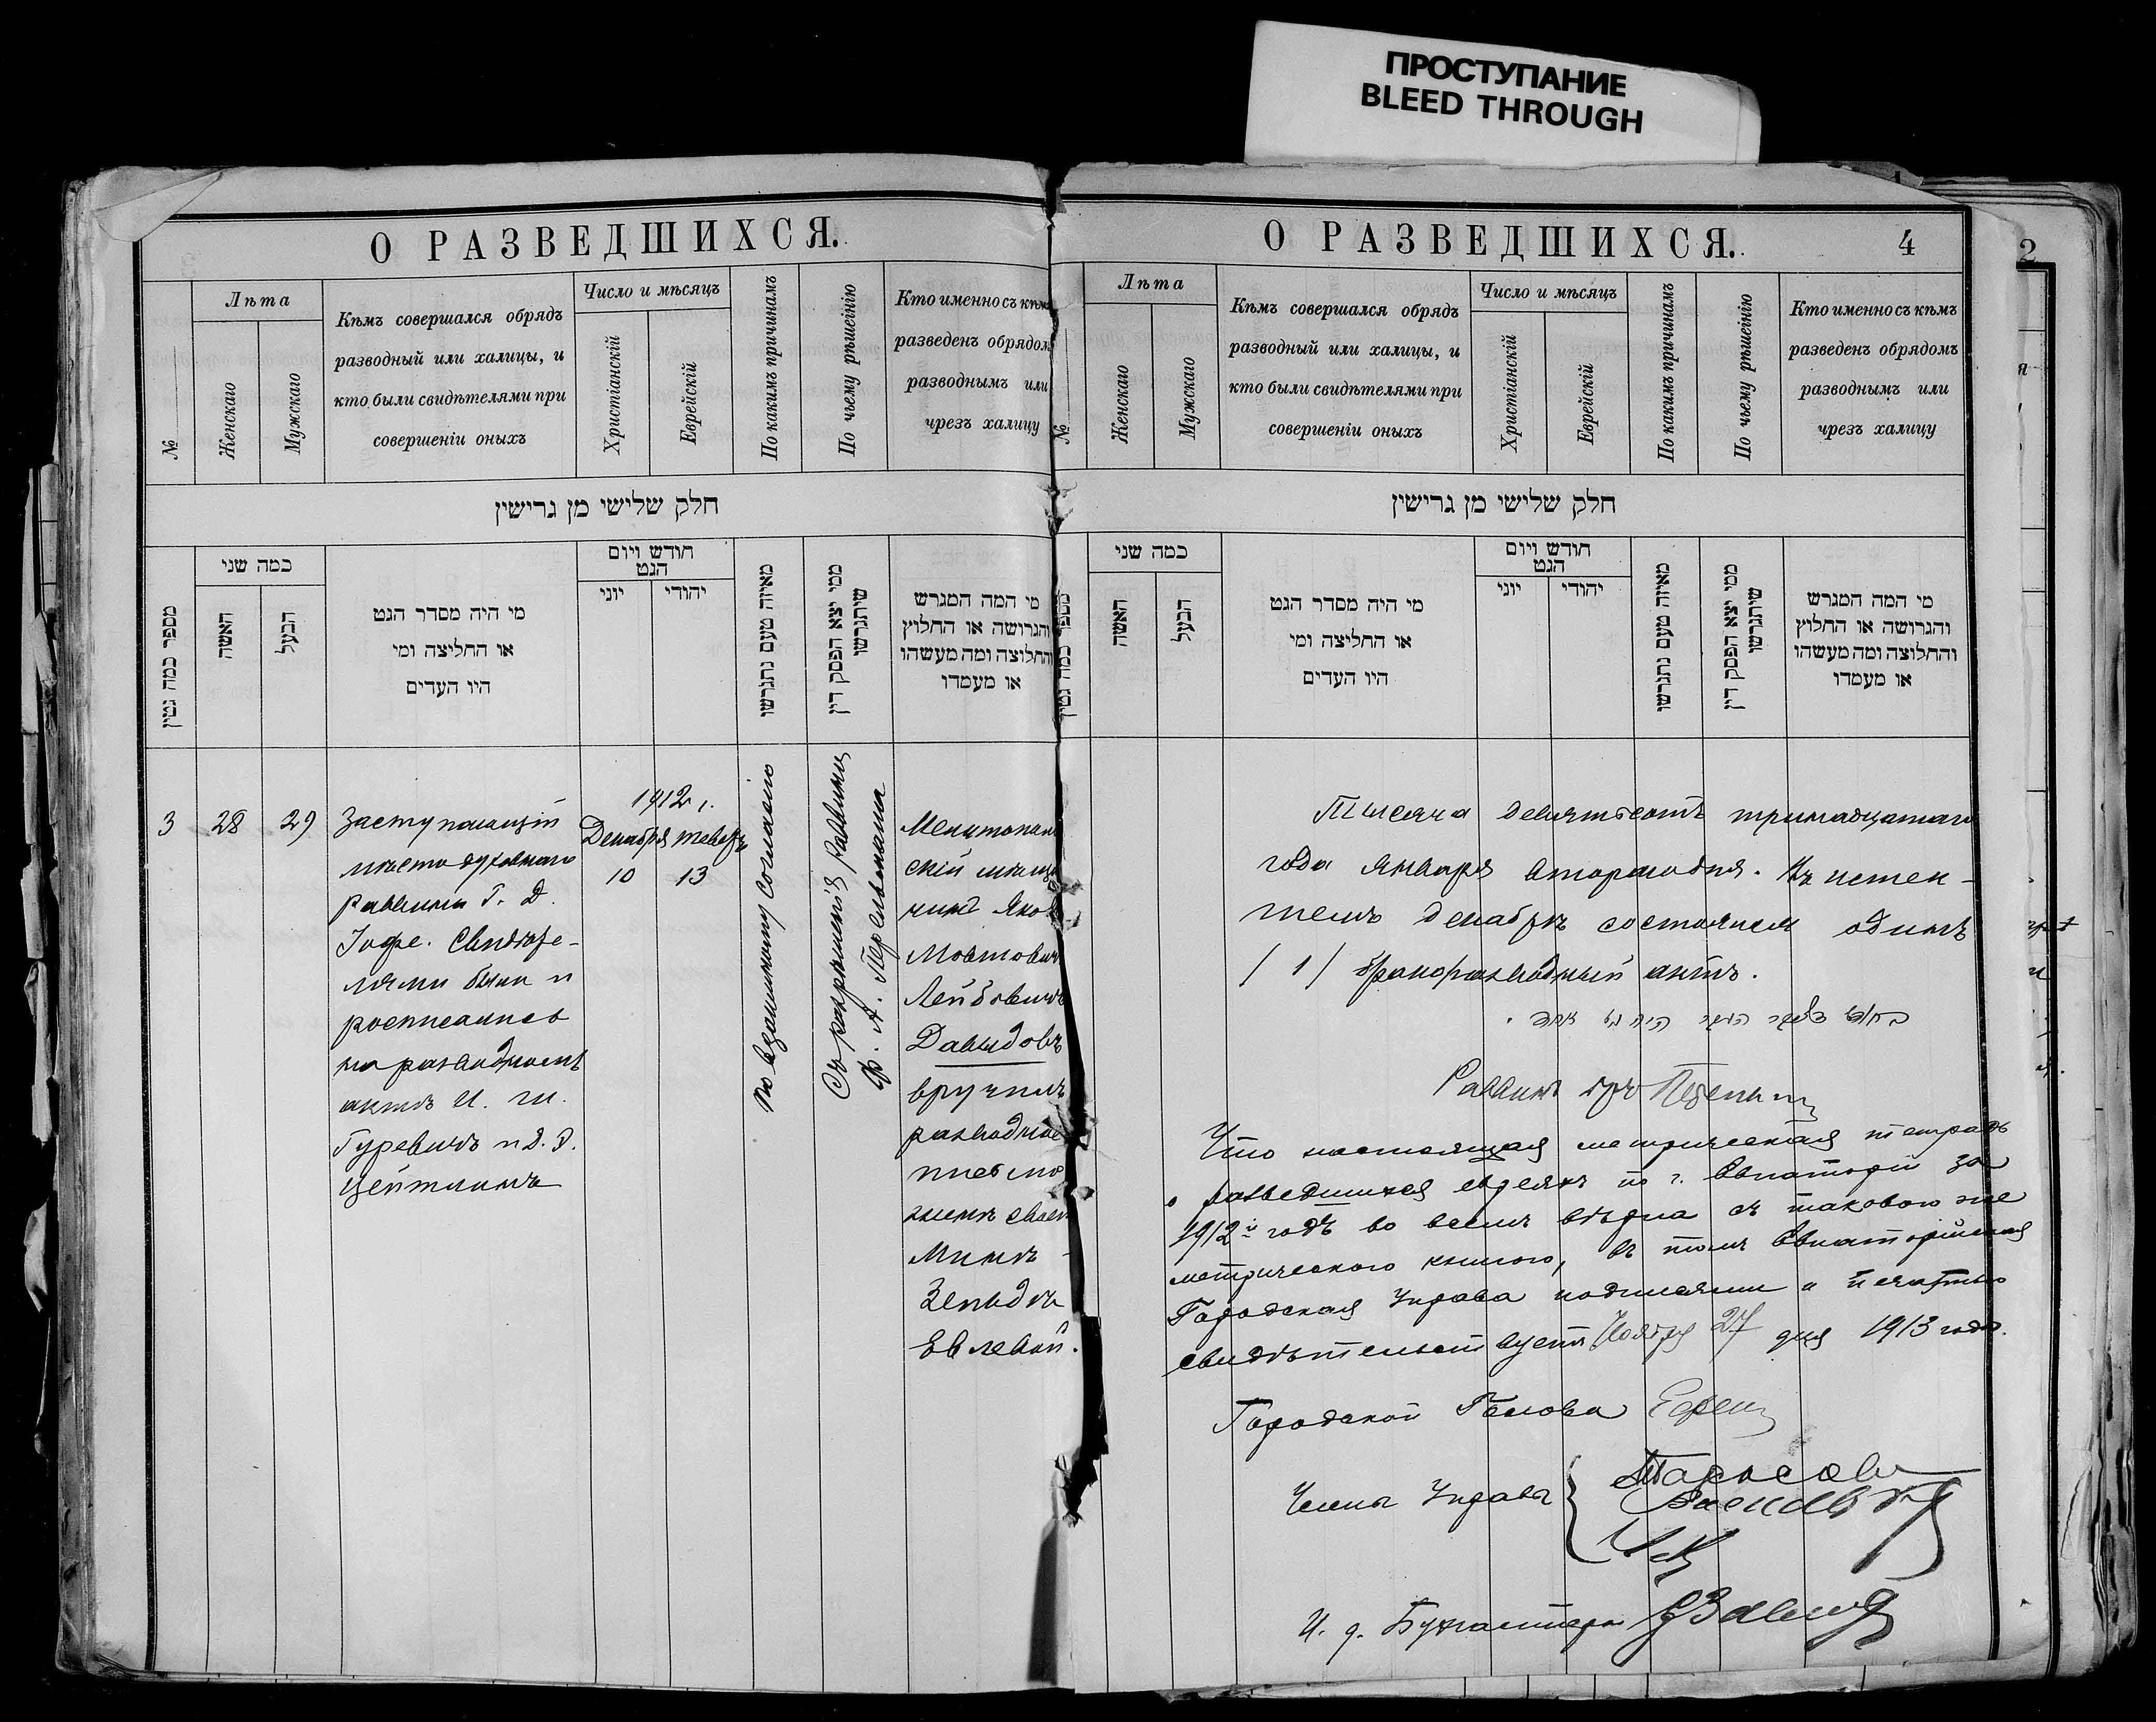 ПРОСТУПАНИЕ
BLEED THROUGH
О РАЗВЕДШИХСЯ.
№
Лѣта
Женскаго
Мужскаго
Кѣмъ совершался обрядъ
разводный или халицы, и
кто были свидѣтелями при
совершеніи оныхъ
Число и мѣсяцъ
Христіанскій
Еврейскій
По какимъ причинамъ
По чьему рѣшенію
Кто именно съ кѣмъ
разведенъ обрядомъ
разводнымъ или
чрезъ халицу
חלק שלישי מן גרישין
מספר כמה גטין
כמה שני
האשה
הבעל
מי היה מסדר הגט
או החליצה ומי
היו העדים
חודש ויום
הגט
יוני
יהודי
מאיזה טעם נתגרשו
ממי יצא הפסק דין
שיתגרשו
מי המה המגרש
והגרושה או החלוץ
והחלוצה ומה מעשהו
או מעמדו
3
28
29
Заступающій
мѣсто духовнаго
раввина Г. Д.
Іофе. Свидѣте-
лями были и
росписались
на разводномъ
актѣ И. М.
Гуревичъ и
Цейтлинъ
1912 г.
Декабря Теветъ
10 13
По взаимному согласію
Съ разрѣшенія Раввина
Ф. А. Перельмана
Мелитополь
скій мѣща
нинъ Яков
Мовшович
Лейбовичъ
Давыдовъ
вручилъ
разводное
письмо
женѣ своей
Минѣ -
Зельдѣ
Евлевой.
О РАЗВЕДШИХСЯ.
4
2
№
Лѣта
Женскаго
Мужскаго
Кѣмъ совершался обрядъ
разводный или халицы, и
кто были свидѣтелями при
совершеніи оныхъ
Число и мѣсяцъ
Христіанскій
Еврейскій
По какимъ причинамъ
По чьему рѣшенію
Кто именно съ кѣмъ
разведенъ обрядомъ
разводнымъ или
чрезъ халицу
חלק שלישי מן גרישין
כמה שני
האשה
הבעל
מי היה מסדר הגט
או החליצה ומי
היו העדים
חודש ויום
הגט
יוני
יהודי
מאיזה טעם נתגרשו
ממי יצא הפסק דין
שיתגרשו
מי המה המגרש
והגרושה או החלוץ
והחלוצה ומה מעשהו
או מעמדו
Тысяча девятьсотъ тринадцатаго
года января второго дня. Въ истек-
шемъ декабрѣ состоялся одинъ
/ 1 / бракоразводный актъ.
Раввинъ
Что настоящая метрическая тетрадь
о разведшихся евреяхъ по г. Евпаторіи за
1912й годъ во всемъ вѣрна съ таковою же
метрическою книгою, въ томъ Евпаторійская
Городская Управа подписями и печатью
свидѣтельствуетъ Ноября 27 дня 1913 года.
Городской Голова
Члены Управы
И. д. Бухгалтера